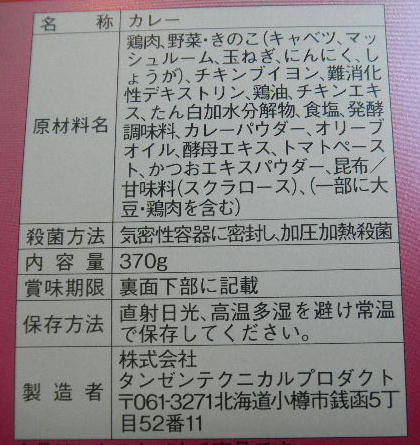 名称 カレー
原材料名 鶏肉、野菜・きのこ(キャベツ、マッ
シュルーム、玉ねぎ、にんにく、し
ょうが)、チキンブイヨン、難消化
性デキストリン、鶏油、チキンエキ
ス、たん白加水分解物、食塩、発酵
調味料、カレーパウダー、オリーブ
オイル、酵母エキス、トマトペース
ト、かつおエキスパウダー、昆布/
甘味料(スクラロース)、(一部に大
豆・鶏肉を含む)
殺菌方法 気密性容器に密封し、加圧加熱殺菌
内容量 370g
賞味期限 裏面下部に記載
保存方法 直射日光、高温多湿を避け常温
で保存してください。
製造者 株式会社
タンゼンテクニカルプロダクト
〒061-3271北海道小樽市銭函5丁
目52番11